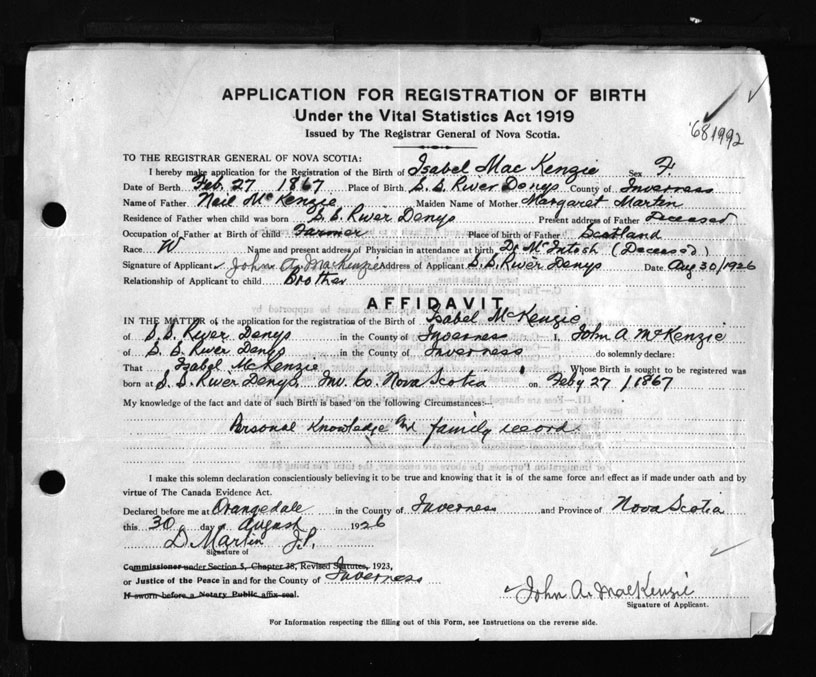 APPLICATION FOR REGISTRATION OF BIRTH
Under the Vital Statistics Act 1919
Issued by The Registrar General of Nova Scotia.
681992
TO THE REGISTRAR GENERAL OF NOVA SCOTIA:
I hereby make application for the Registration of the Birth of Isabel MacKenzie Sex F.
Date of Birth Feb. 27 1867 Place of Birth S.S. River Denys County of Inverness
Name of Father Neil McKenzie Maiden Name of Mother Margaret Martin
Residence of Father when child was born S.S. River Denys Present address of Father Deceased
Occupation of Father at Birth of child Farmer Place of birth of Father Scotland
Race W Name and present address of Physician in attendance at birth Dr McIntosh (Deceased)
Signature of Applicant John A. MacKenzie Address of Applicant S.S. River Denys Date Aug 30/1926
Relationship of Applicant to child Brother
AFFIDAVIT
IN THE MATTER of the application for the registration of the Birth of Isabel McKenzie
of S.S. River Denys in the County of Inverness I, John A McKenzie
of S.S. River Denys in the County of Inverness do solemnly declare:
That Isabel McKenzie Whose Birth is sought to be registered was
born at S.S. River Denys, Inv. Co. Nova Scotia on Feby 27 / 1867
My knowledge of the fact and date of such Birth is based on the following Circumstances:—
Personal Knowledge and family record.
I make this solemn declaration conscientiously believing it to be true and knowing that it is of the same force and effect as if made under oath and by
virtue of The Canada Evidence Act.
Declared before me at Orangedale in the County of Inverness and Province of Nova Scotia
this 30 day of August 1926
D Martin J.P.
Signature of
Commissioner under Section 5, Chapter 38, Revised Statutes, 1923,
or Justice of the Peace in and for the County of Inverness
If sworn before a Notary Public affix seal.
John A. MacKenzie
Signature of Applicant.
For Information respecting the filling out of this Form, see Instructions on the reverse side.